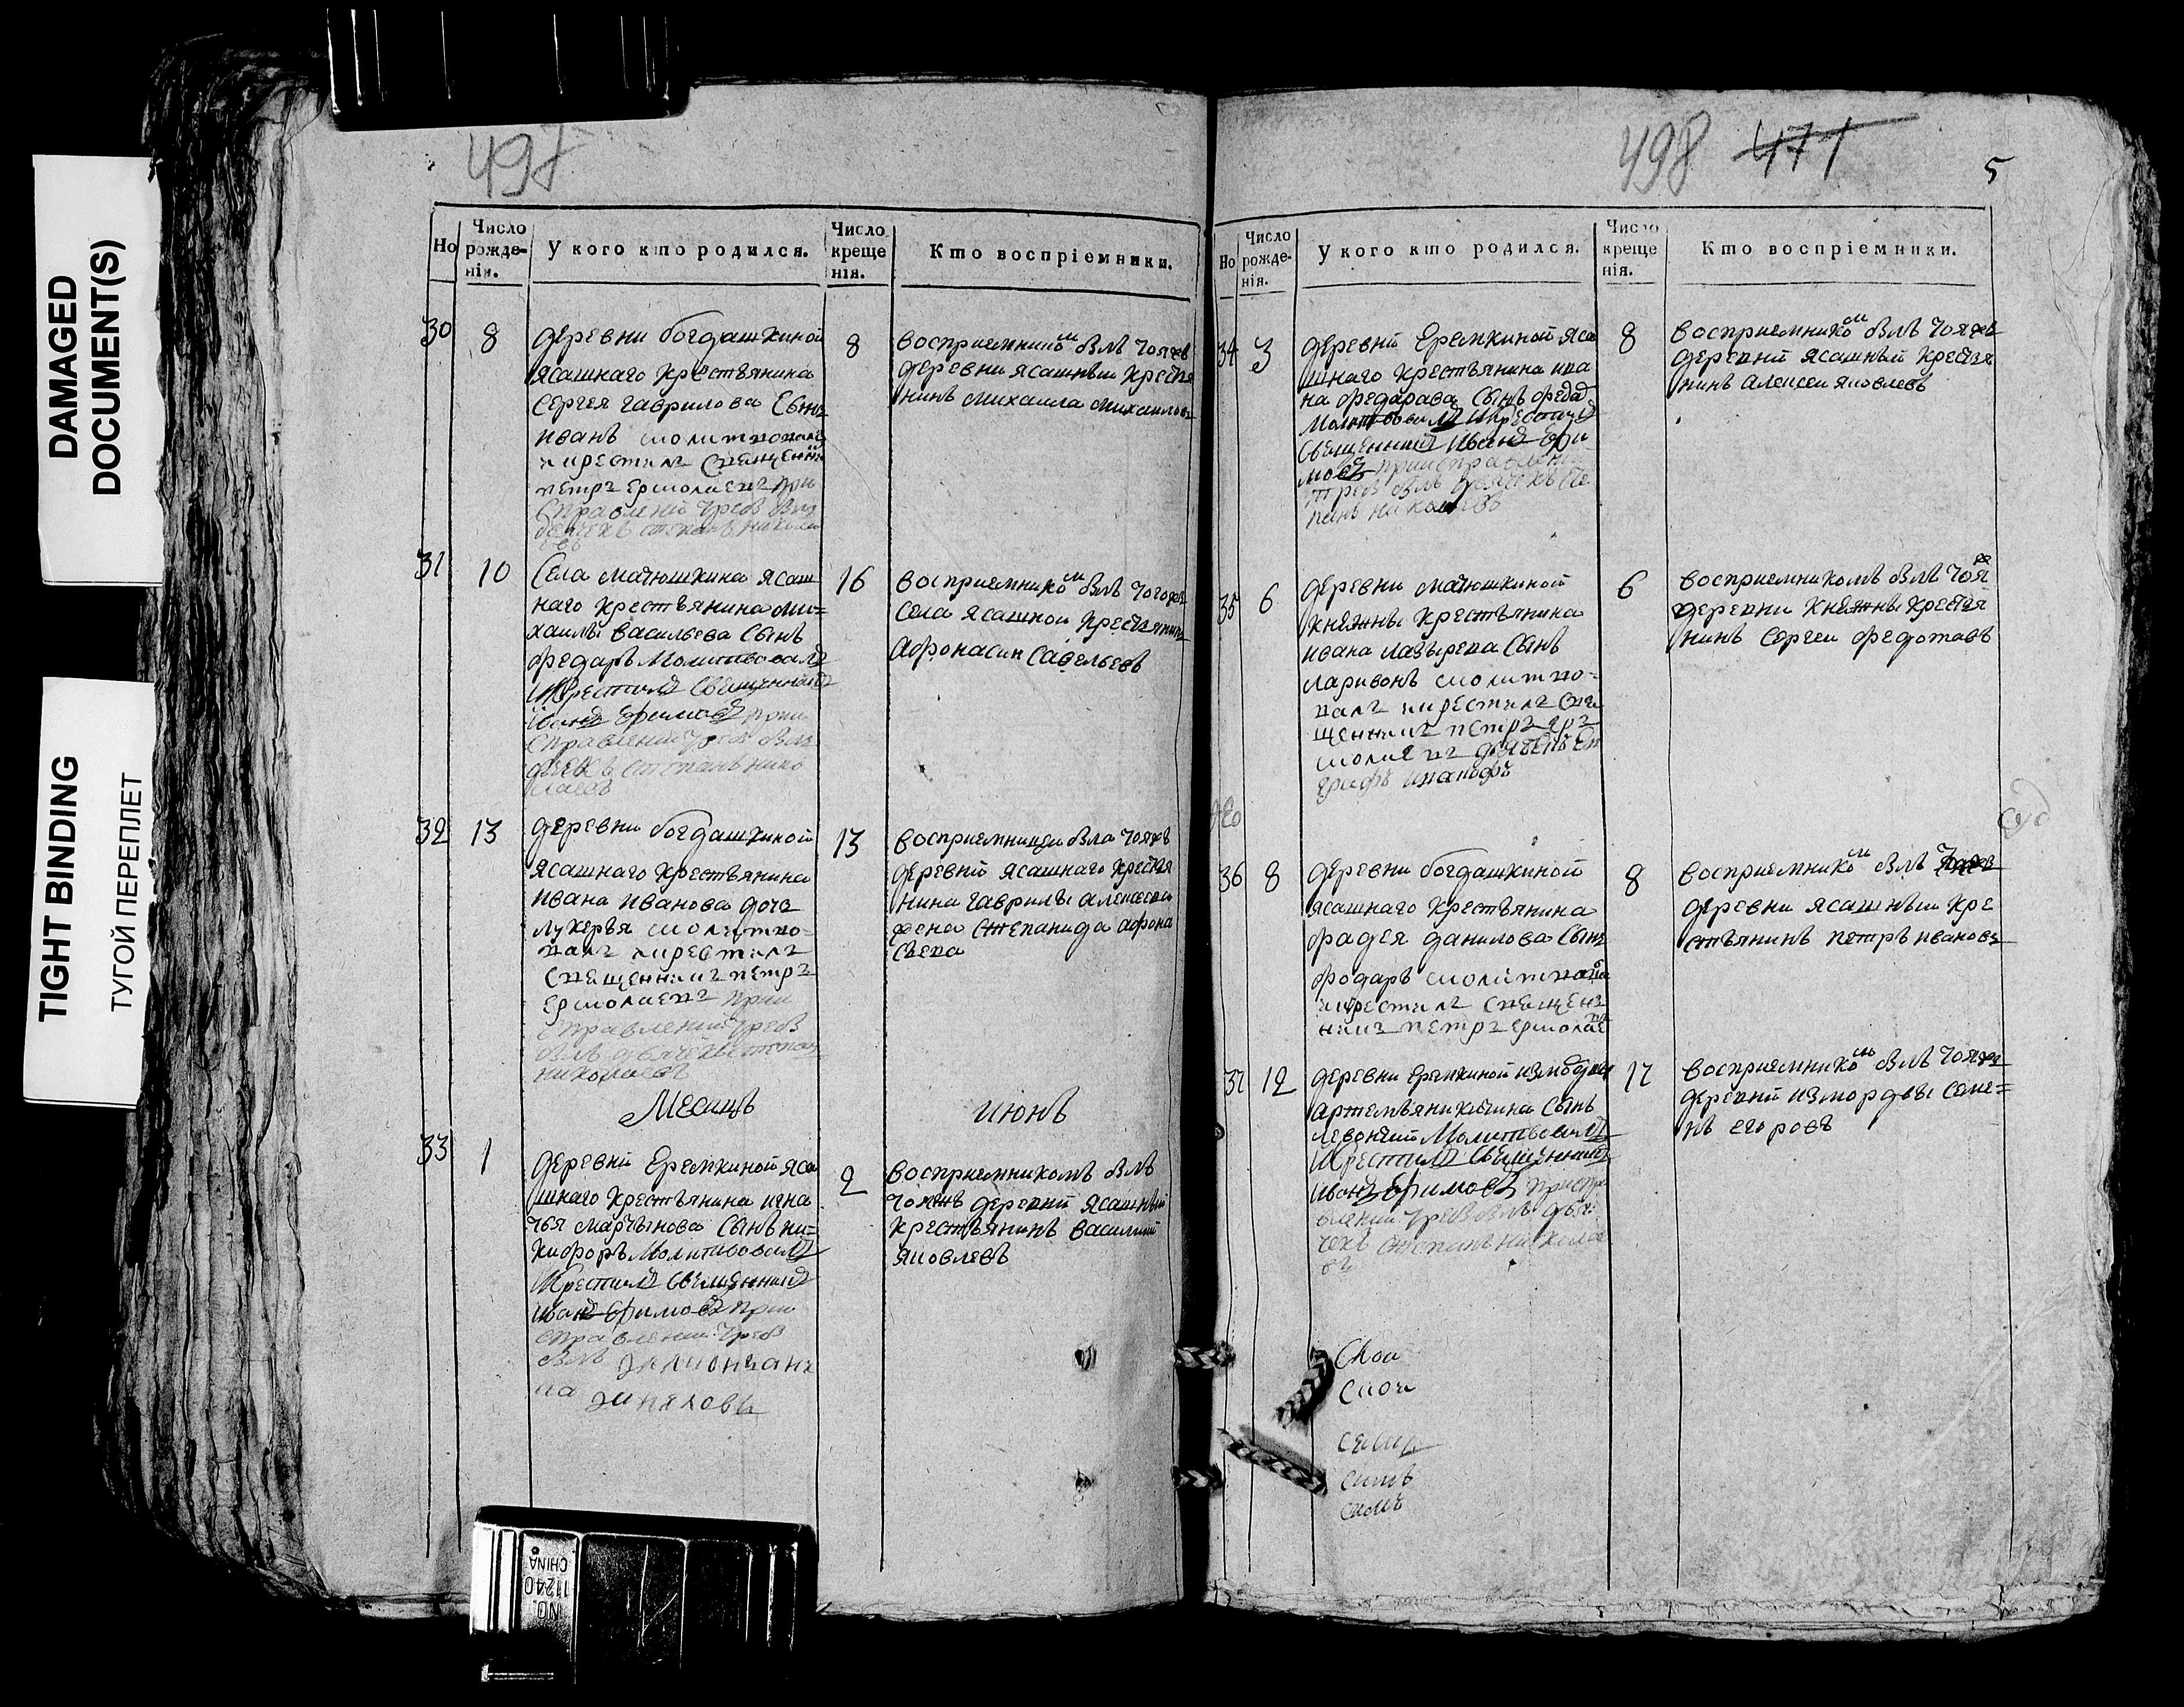 DAMAGED
DOCUMENT(S)
TIGHT BINDING
ТУГОЙ ПЕРЕПЛЕТ
497
Но
Число рожде-нія.
У кого кто родился.
Число креще нія.
Кто воспріемники.
30
8
деревни богдашкиной
ясашнаго крестьянина
Сергея гаврилова Сынъ
иванъ молитвовалъ
и крестилъ Священникъ
петръ ермолаевъ при
справлений требъ былъ
дьячекъ степанъ никола
евъ
8
восприемником былъ тояжъ
деревни ясашный крестья
нинъ михаила михаиловъ
31
10
Села матюшкина ясаш
наго крестьянина ми=
хаилы васильева Сынъ
федаръ Молитвовалъ
и крестилъ Священникъ
иванъ Ефимовъ при
справлений требъ былъ
дьячекъ степанъ нико
лаевъ
16
восприемником былъ тогожъ
села ясашной крестьянинъ
Афонасии Савельевъ
32
13
деревни богдашкиной
ясашнаго крестьянина
ивана иванова дочь
лукерья молитво=
валъ и крестилъ
Священникъ петръ
ермолаевъ при
справлений требъ
былъ дьячекъ степанъ
николаевъ
13
восприемницеи была тояжъ
деревнй ясашнаго крестья
нина гаврилы алексеева
жена степанида афона
сьева
Месяцъ
июнь
33
1
деревнй Еремкиной яса
шнаго крестьянина игна
тья мартынова Сынъ ни=
кифоръ Молитвовалъ
и крестилъ Священникъ
иванъ Ефимовъ при
справлений требъ
былъ
2
восприемникомъ былъ
тояжъ деревнй ясашный
крестьянинъ василий
яковлевъ
498 471
5
Но
Число рожде-нія.
У кого кто родился.
Число креще нія.
Кто воспріемники.
34
3
деревнй Еремкиной яса
шнаго крестьянина ива
на федарава Сынъ федар
Молитвовалъ и крестилъ
Священникъ иванъ Ефи
мовъ при справлений
требъ былъ дьячекъ сте
панъ николаевъ
8
восприемником былъ тояжъ
деревнй ясашный крестья
нинъ алексеи яковлевъ
35
6
деревни матюшкиной
княжны крестьянина
ивана лазырева Сынъ
ларивонъ молитво=
валъ и крестилъ Свя
щенникъ петръ ер
молаевъ дьячекъ Ев
графъ
6
восприемникомъ былъ тояж
деревни княжны крестья
нинъ сергеи федотавъ
36
8
деревни богдашкиной
ясашнаго крестьянина
фадея данилова Сынъ
фодаръ молитвовалъ
и крестилъ Священ
никъ петръ ермолаевъ
8
восприемником былъ тояжъ
деревни ясашныи кре
стьянинъ петръ ивановъ
37
12
деревни еремкиной измордвы
артемья никитина Сынъ
левонтий Молитвовалъ
и крестилъ Священникъ
иванъ Ефимовъ при спра
влений требъ былъ дья
чекъ степанъ никола
евъ
17
восприемником былъ тояжъ
деревнй измордвы семе=
нъ егоровъ
NO.
11240
CHINA